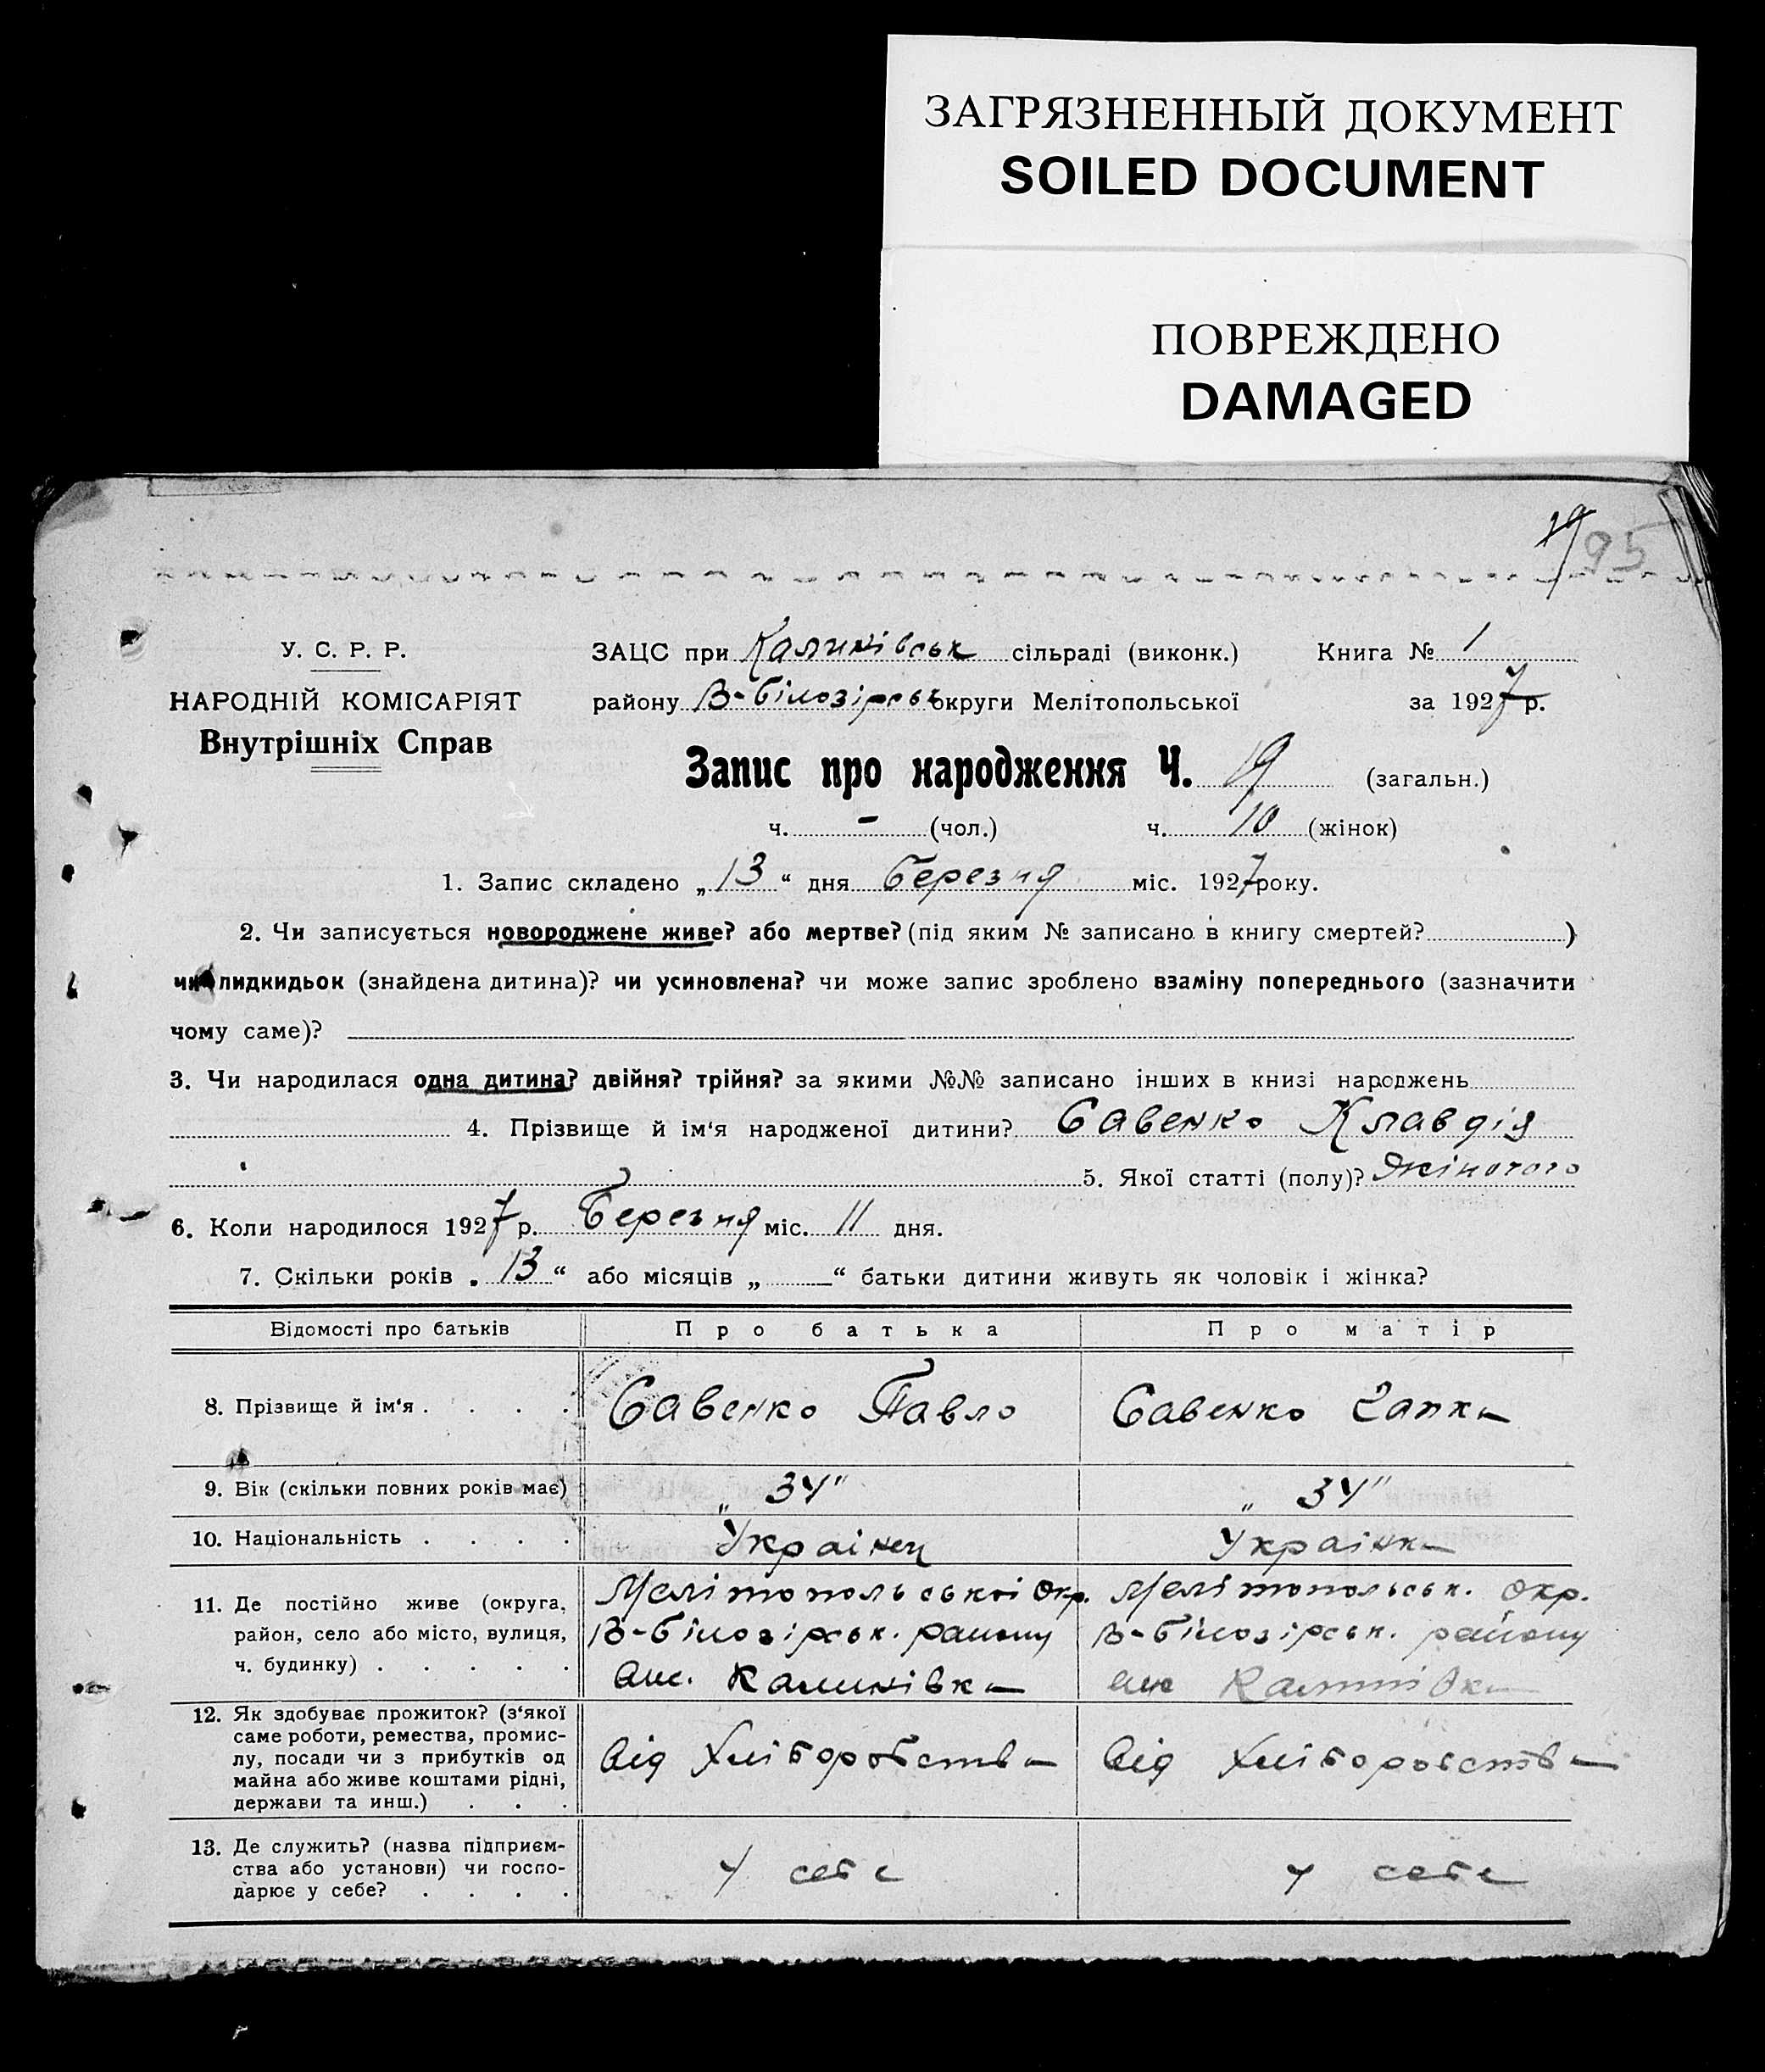 ЗАГРЯЗНЕННЫЙ ДОКУМЕНТ
SOILED DOCUMENT
ПОВРЕЖДЕНО
DAMAGED
19
95
У. С. Р. Р.
НАРОДНІЙ КОМІСАРІЯТ
Внутрішніх Справ
ЗАЦС при Калинівськ сільраді (виконк.) Книга № 1
району В-Білозірськ округи Мелітопольської за 1927 р.
Запис про народження Ч. 19 (загальн.)
ч. - (чол.) ч. 10 (жінок)
1. Запис складено „13“ дня Березня міс. 1927 року.
2. Чи записується новороджене живе? або мертве? (під яким № записано в книгу смертей? )
чи пидкидьок (знайдена дитина)? чи усиновлена? чи може запис зроблено взаміну попереднього (зазначити
чому саме)?
3. Чи народилася одна дитина? двійня? трійня? за якими №№ записано інших в книзі народжень
4. Прізвище й ім‘я народженої дитини? Савенко Клавдія
5. Якої статті (полу)? Жіночого
6. Коли народилося 1927 р. Березня міс. 11 дня.
7. Скільки років „13“ або місяців „—“ батьки дитини живуть як чоловік і жінка?
Відомості про батьків Про батька Про матір
8. Прізвище й ім‘я . . . . Савенко Павло Савенко
9. Вік (скільки повних років має) „34" „34"
10. Національність . . . . Українец Українка
11. Де постійно живе (округа, Мелітопольської Окр. Мелітопольськ. Окр.
район, село або місто, вулиця, В-Білозірськ. району В-Білозірськ. району
ч. будинку) . . . . . Калинівка Калинівка
12. Як здобуває прожиток? (з‘якої
саме роботи, ремества, промис-
лу, посади чи з прибутків од від Хліборобства від Хліборобства
майна або живе коштами рідні,
держави та инш.) . . .
13. Де служить? (назва підприєм-
ства або установи) чи госпо- У себе У себе
дарює у себе? . . . .